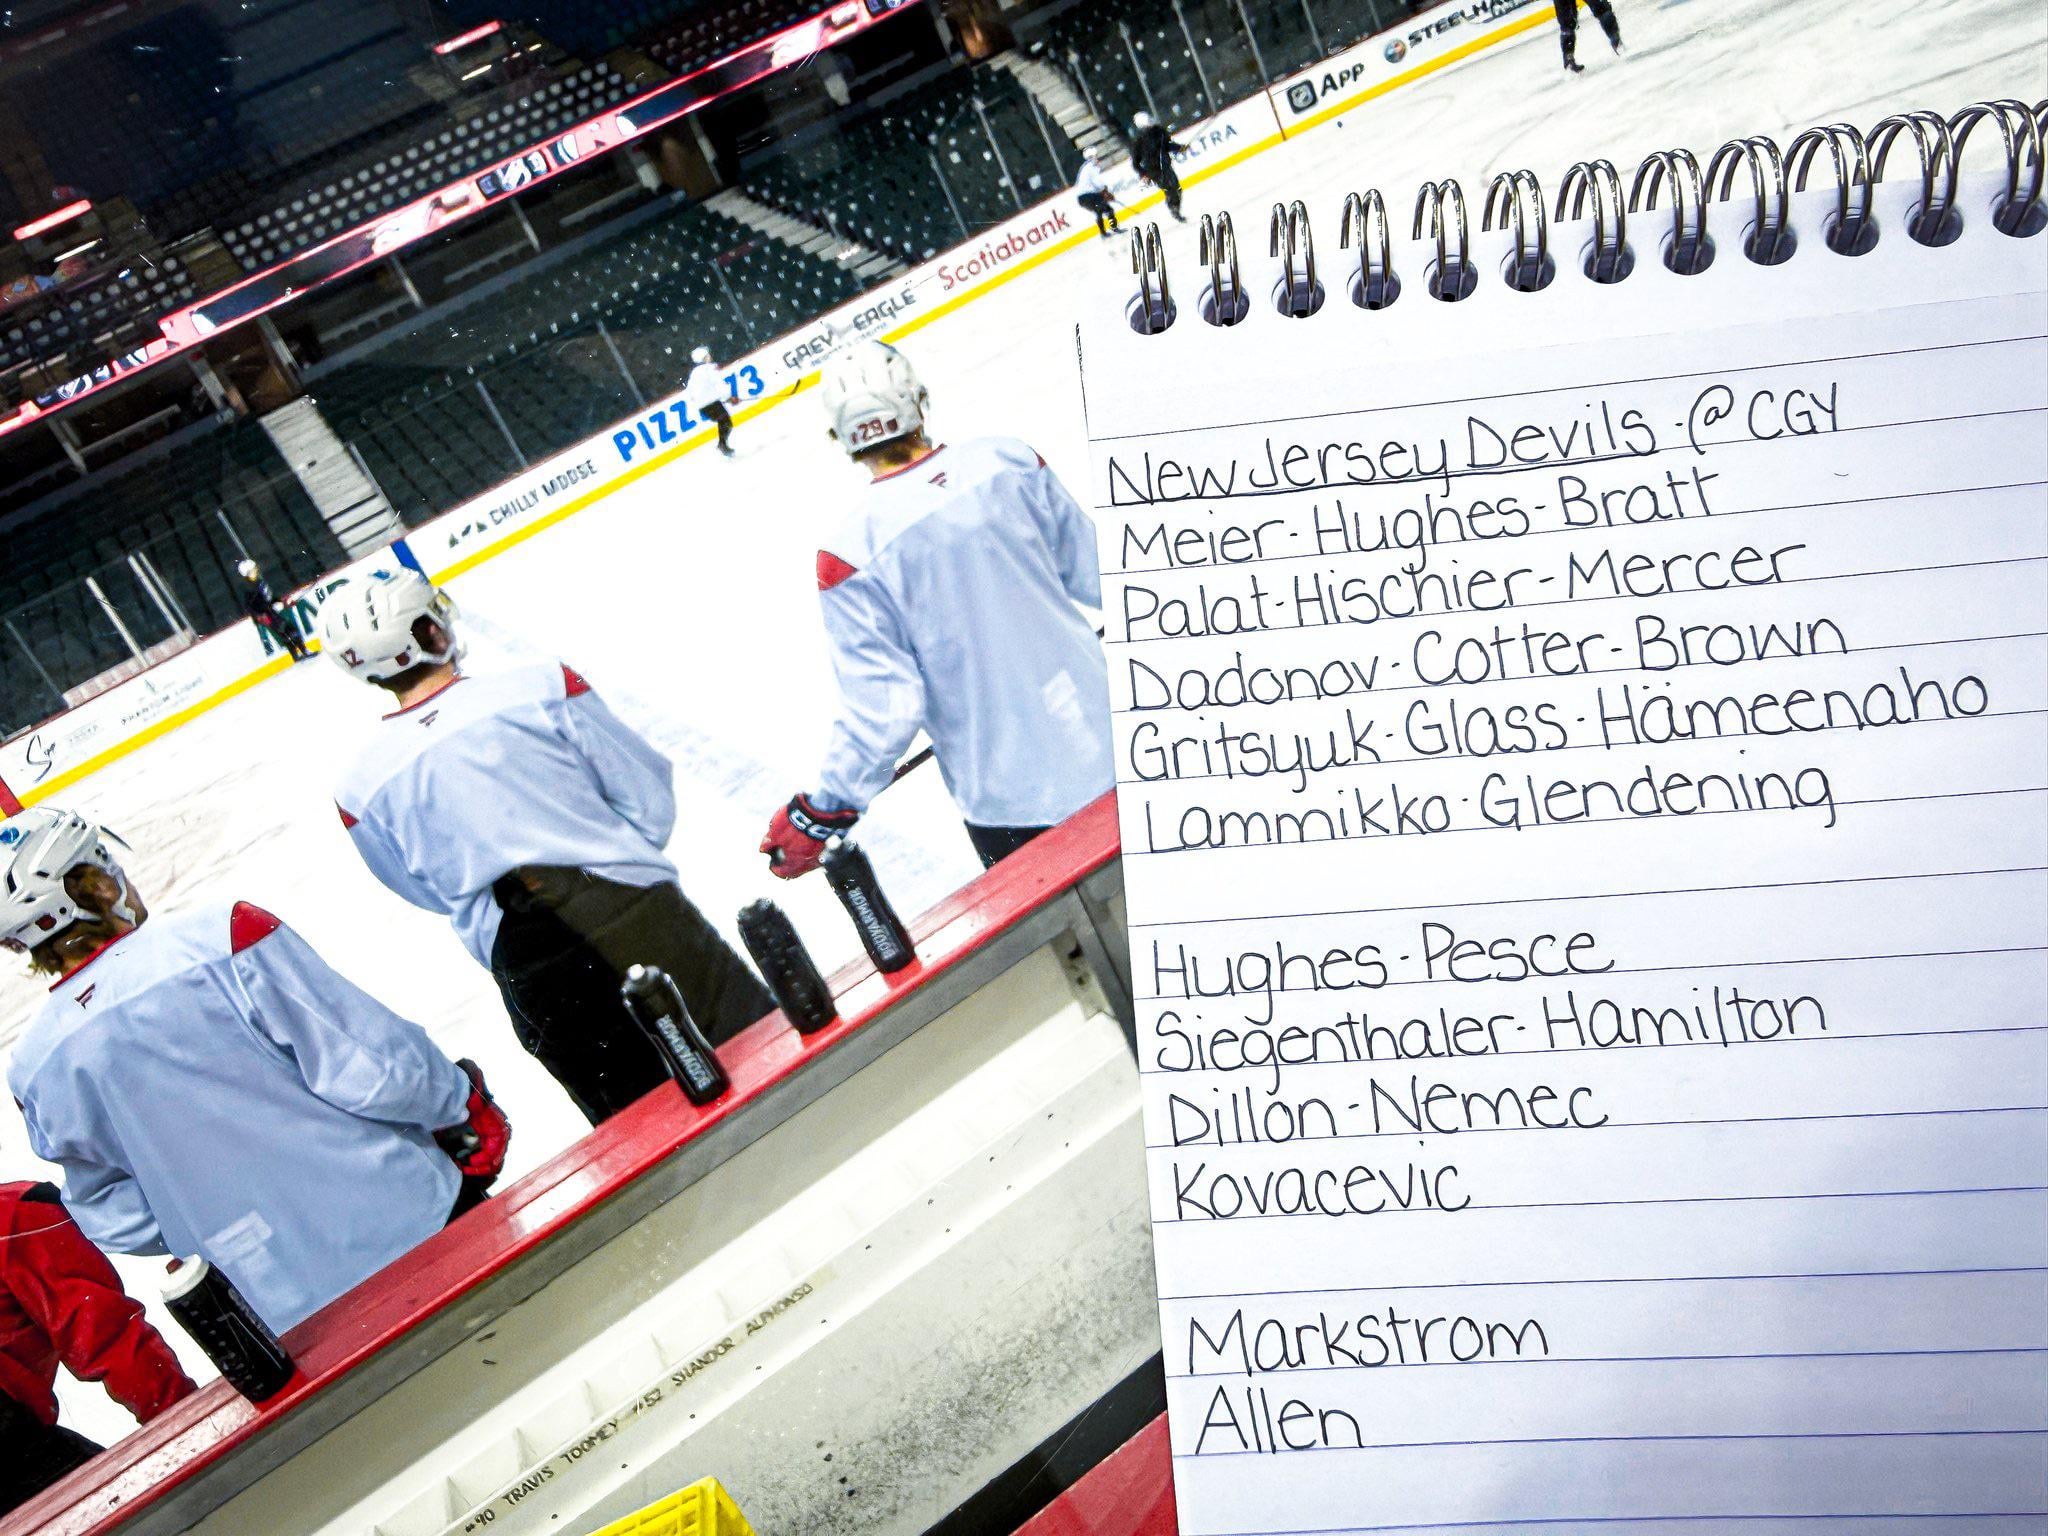 STEELHA
App
ULTRA
Scotiabank
GREY EAGLE
PIZZ 73
CHILLY MOOSE
29
12
CCM
BODYARMOR
BODYARMOR
#90 TRAVIS TOOMEY #52 SHANDOR ALPHONSO
New Jersey Devils - @ CGY
Meier - Hughes - Bratt
Palat - Hischier - Mercer
Dadonov - Cotter - Brown
Gritsyuk - Glass - Hämeenaho
Lammikko - Glendening
Hughes - Pesce
Siegenthaler - Hamilton
Dillon - Nemec
Kovacevic
Markstrom
Allen